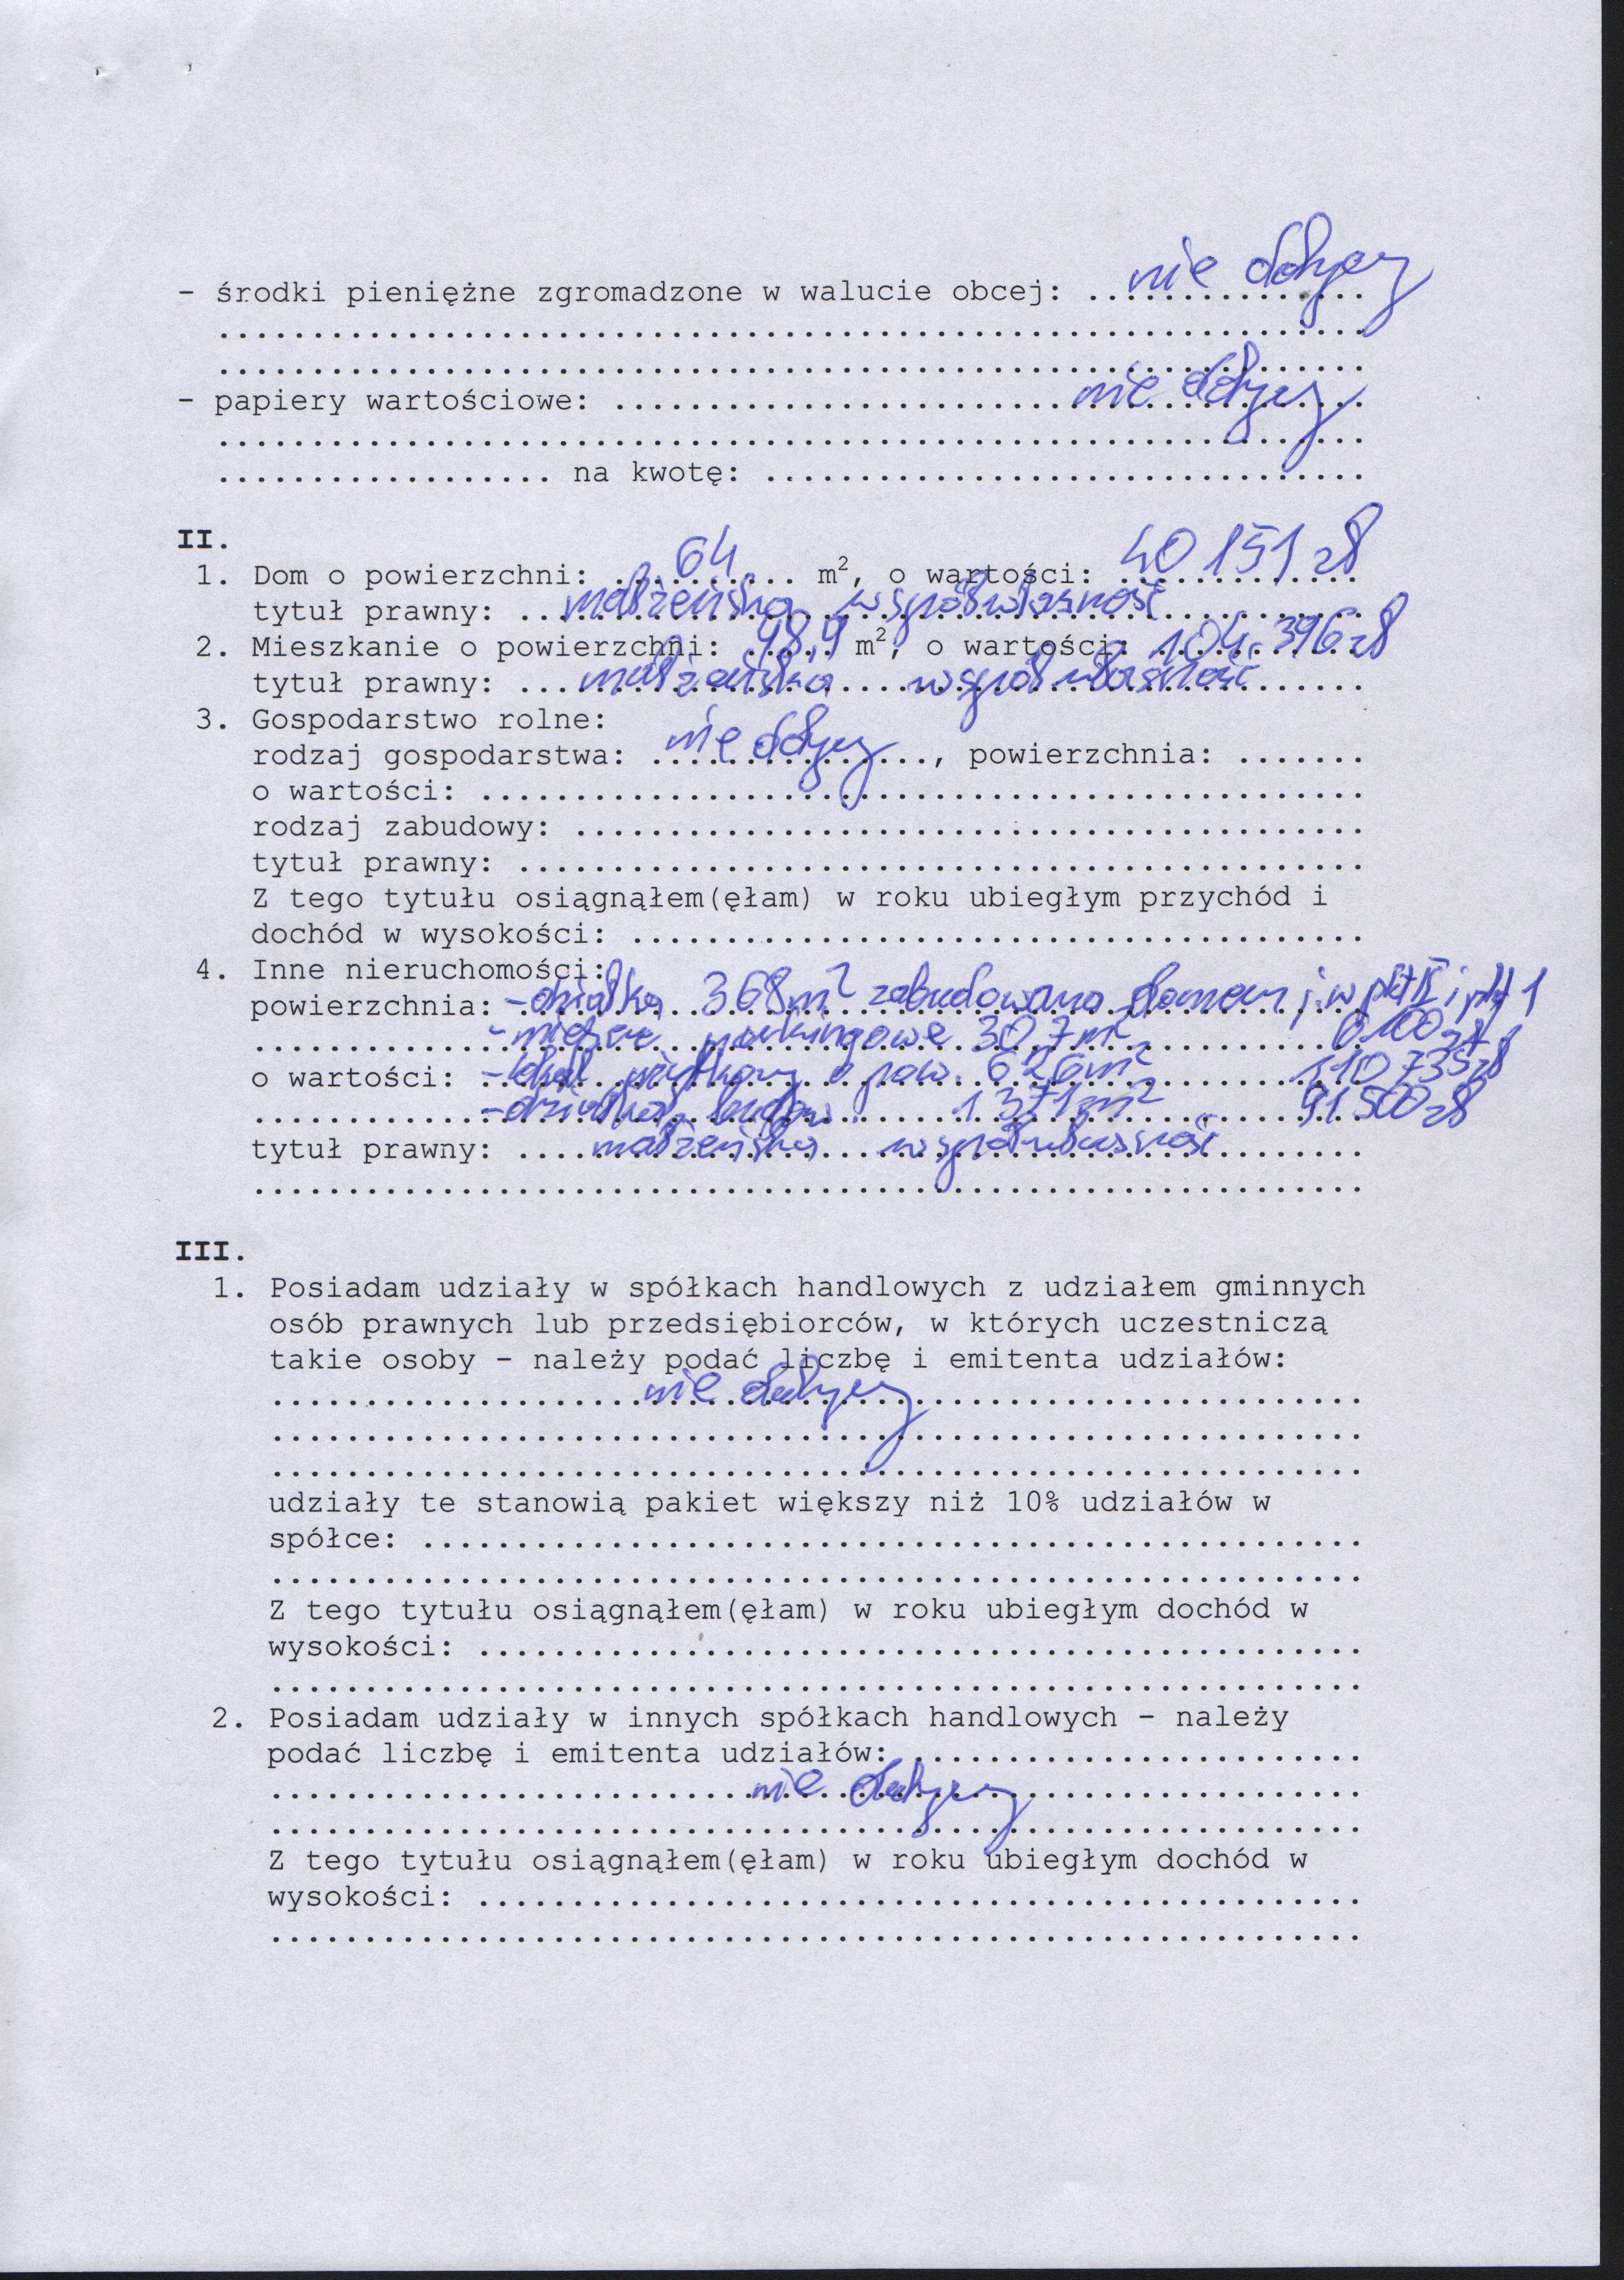 - środki pieniężne zgromadzone w walucie obcej: nie dotyczy
- papiery wartościowe: nie dotyczy
na kwotę:
II.
1. Dom o powierzchni: 64 m², o wartości: 40 151 zł
tytuł prawny: małżeńska współwłasność
2. Mieszkanie o powierzchni: 48,9 m², o wartości: 104.396 zł
tytuł prawny: małżeńska współwłasność
3. Gospodarstwo rolne:
rodzaj gospodarstwa: nie dotyczy, powierzchnia:
o wartości:
rodzaj zabudowy:
tytuł prawny:
Z tego tytułu osiągnąłem(ęłam) w roku ubiegłym przychód i
dochód w wysokości:
4. Inne nieruchomości:
powierzchnia: - działka 368m² zabudowana domem j.w pkt II i pkt 1
- miejsce parkingowe 6100 zł
o wartości: - lokal użytkowy o pow. 110 735 zł
- działka 1371m² 91 500 zł
tytuł prawny: małżeńska współwłasność
III.
1. Posiadam udziały w spółkach handlowych z udziałem gminnych
osób prawnych lub przedsiębiorców, w których uczestniczą
takie osoby - należy podać liczbę i emitenta udziałów:
nie dotyczy
udziały te stanowią pakiet większy niż 10% udziałów w
spółce:
Z tego tytułu osiągnąłem(ęłam) w roku ubiegłym dochód w
wysokości:
2. Posiadam udziały w innych spółkach handlowych - należy
podać liczbę i emitenta udziałów:
nie dotyczy
Z tego tytułu osiągnąłem(ęłam) w roku ubiegłym dochód w
wysokości: